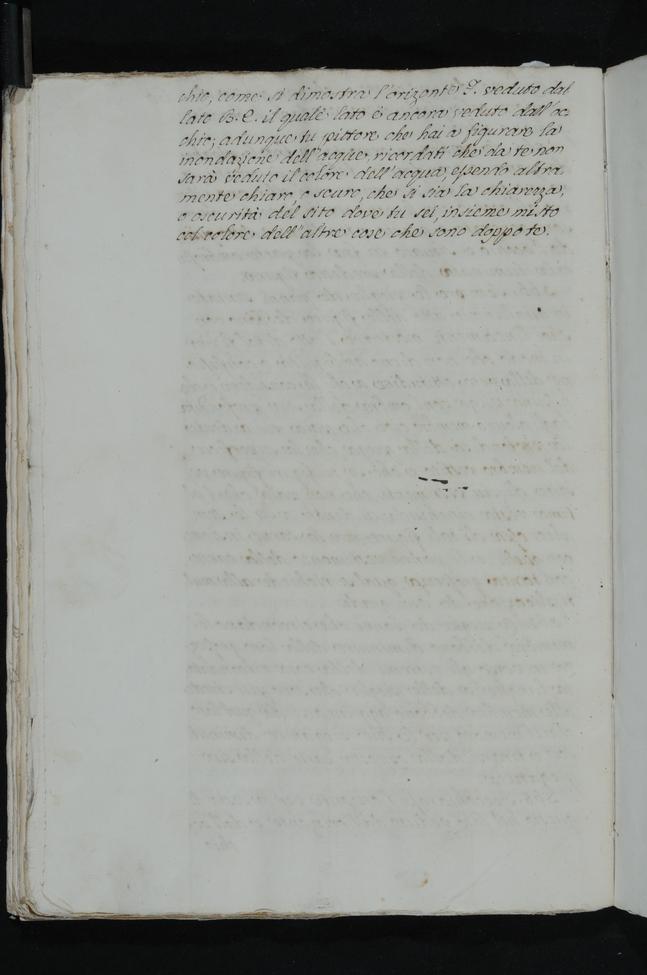 chio, come si dimostra l'orizonte veduto dal
lato B. C. il quale lato è ancora veduto dall'oc¬
chio; adunque tu pittore che hai a figurare la
inondazione dell'acque, ricordati che da te non
sarà veduto il colore dell'acqua, essendo altra¬
mente chiaro, o scuro, che si sia la chiarezza,
o oscurità del sito dove tu sei, insieme misto
col colore dell'altre cose che sono doppo te.